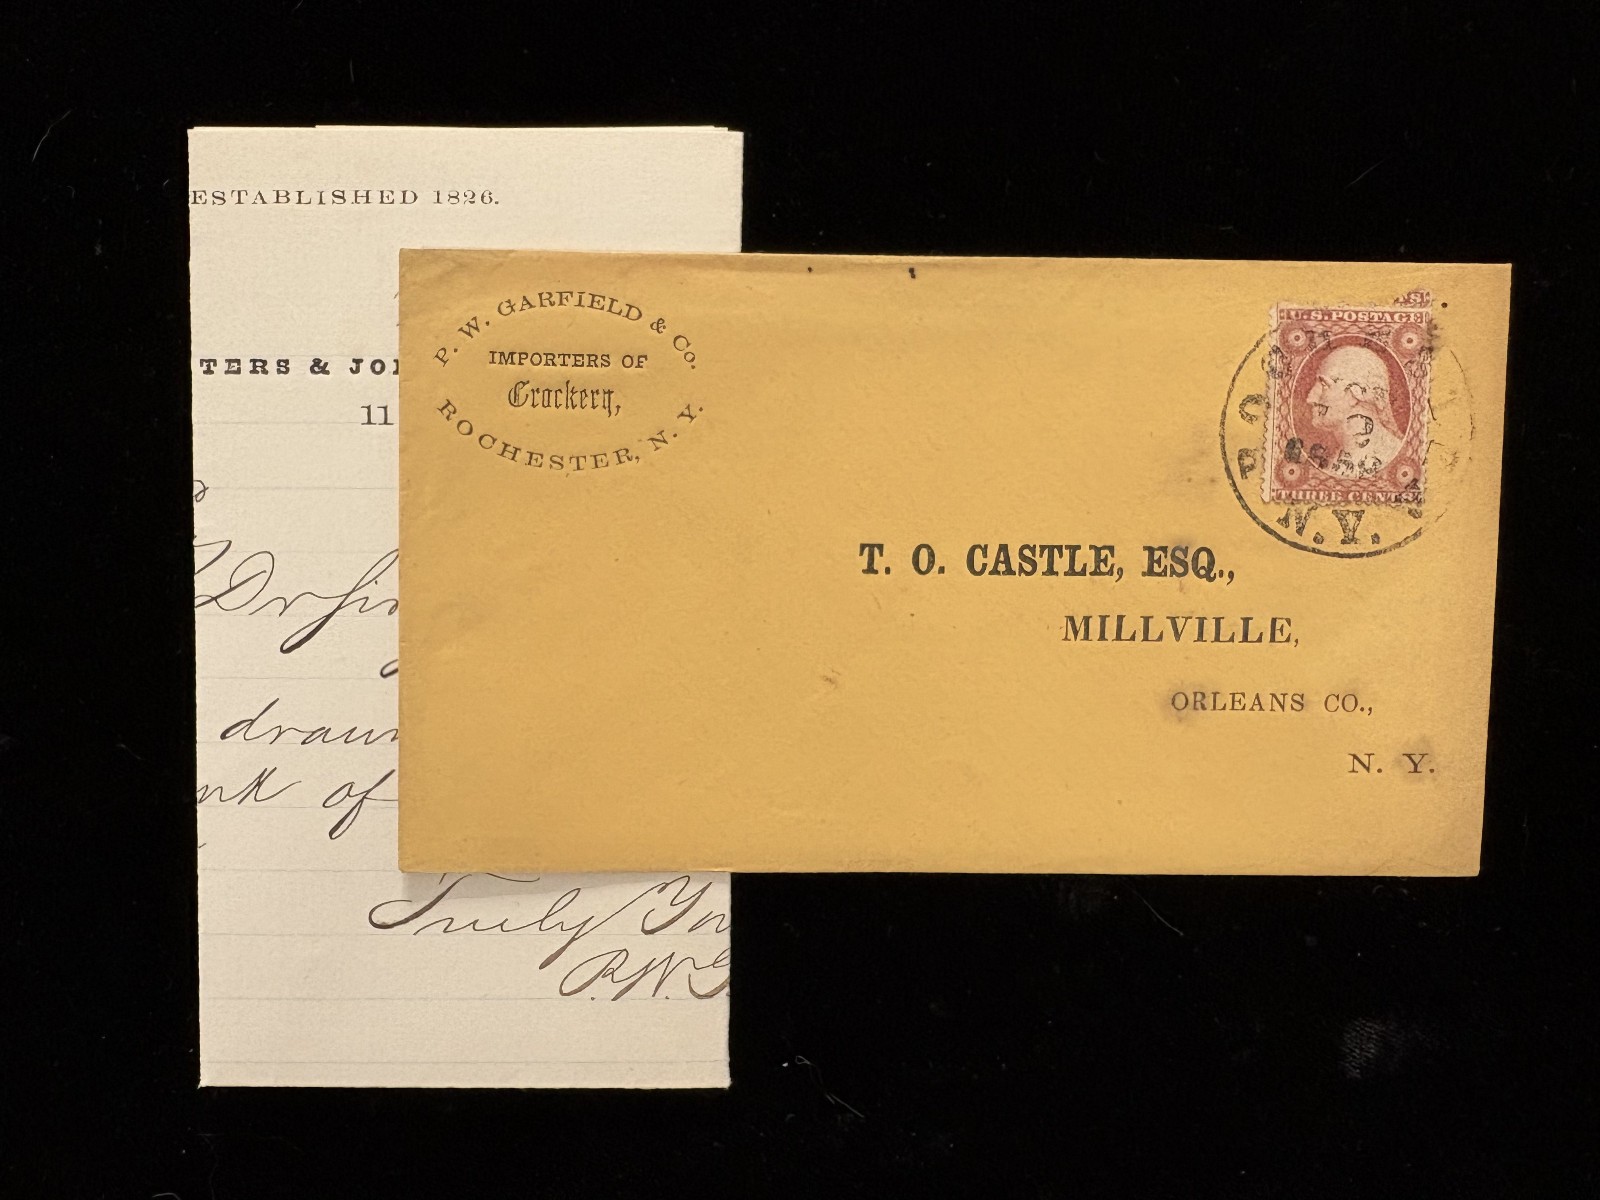 ESTABLISHED 1826.
TERS & JO
11
Dr Sir
drawn
of
Truly Yo
P. W. G
P. W. GARFIELD & Co.
IMPORTERS OF
Crockery,
ROCHESTER, N. Y.
U.S. POSTAGE
THREE CENTS
N.Y.
T. O. CASTLE, ESQ.,
MILLVILLE,
ORLEANS CO.,
N. Y.